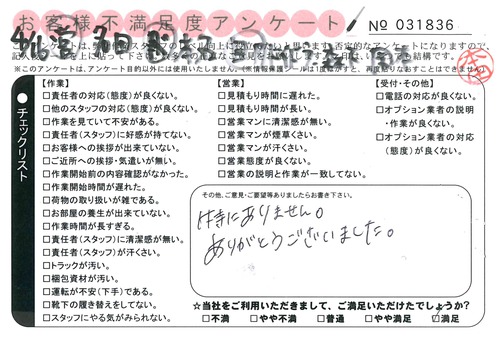 お客様不満足度アンケート
№ 031836
※このアンケートは、アンケート目的以外には使用いたしません。
チェックリスト
【作業】
□責任者の対応(態度)が良くない。
□他のスタッフの対応(態度)が良くない。
□作業を見ていて不安がある。
□責任者(スタッフ)に好感が持てない。
□お客様への挨拶が出来ていない。
□ご近所への挨拶・気遣いが無い。
□作業開始前の内容確認がなかった。
□作業開始時間が遅れた。
□荷物の取り扱いが雑である。
□お部屋の養生が出来ていない。
□作業時間が長すぎる。
□責任者(スタッフ)に清潔感が無い。
□責任者(スタッフ)が汗くさい。
□トラックが汚い。
□梱包資材が汚い。
□運転が不安(下手)である。
□靴下の履き替えをしてない。
□スタッフにやる気がみられない。
【営業】
□見積もり時間に遅れた。
□見積もり時間が長い。
□営業マンに清潔感が無い。
□営業マンが煙草くさい。
□営業マンが汗くさい。
□営業態度が良くない。
□営業の説明と作業が一致してない。
【受付・その他】
□電話の対応が良くない。
□オプション業者の説明
・作業が良くない。
□オプション業者の対応
(態度)が良くない。
その他、ご意見・ご要望等ありましたらお書き下さい。
特にありません。
ありがとうございました。
☆当社をご利用いただきまして、ご満足いただけたでしょうか?
□不満 □やや不満 □普通 □やや満足 ☑満足